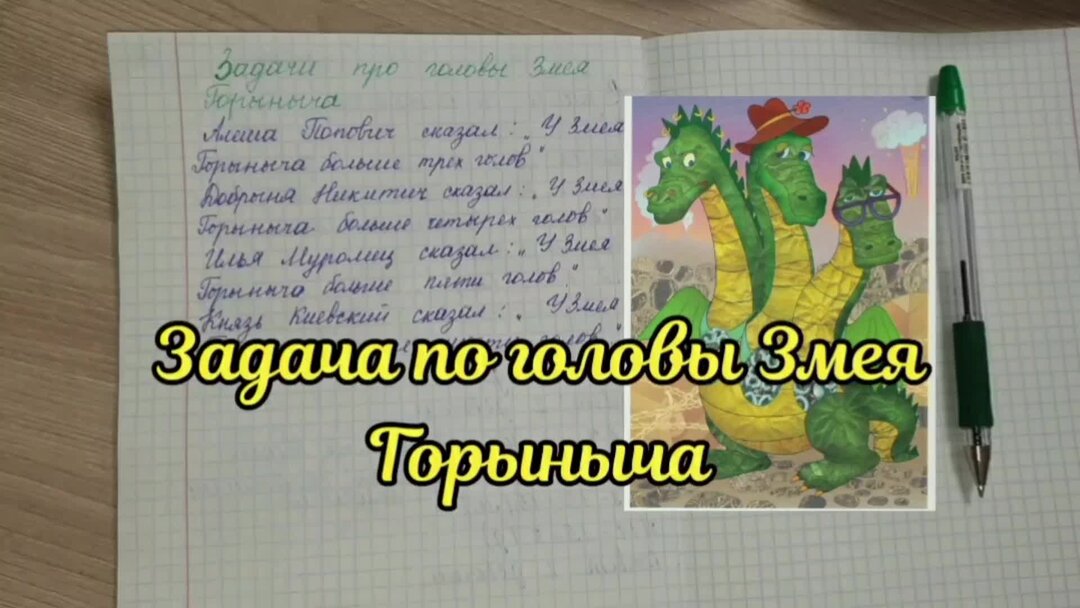 Задачи про головы Змея
Горыныча
Алеша Попович сказал: „У Змея
Горыныча больше трех голов"
Добрыня Никитич сказал: „У Змея
Горыныча больше четырех голов"
Илья Муромец сказал: „У Змея
Горыныча больше пяти голов"
Князь Киевский сказал: „У Змея
голов"
Задача по головы Змея
Горыныча